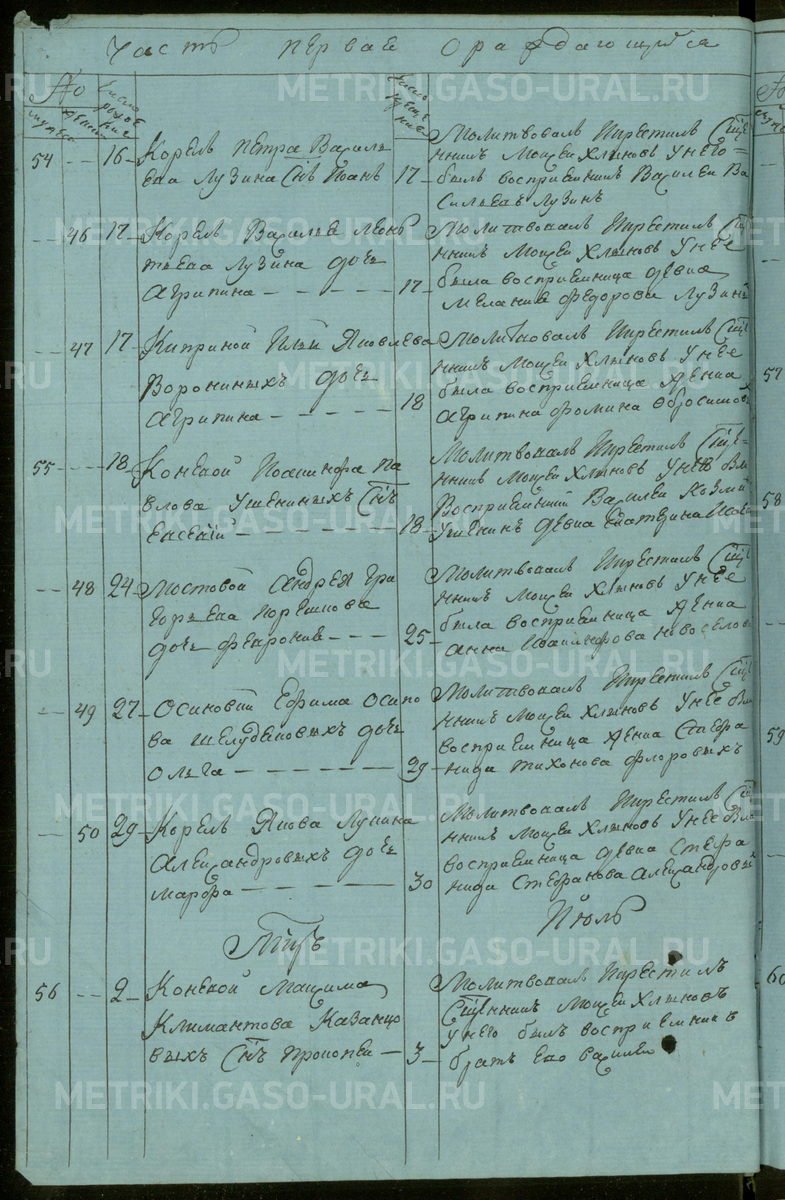 Часть первае ораждающийся
No
число рожде ния
число креще ния
мужеск женск
54 -- 16 - Корелъ Петра Василь
ева Лузина Снъ Иванъ 17 -
Молитвовалъ Икрестилъ Свще
нникъ Моисеи Хлыновъ Унего
былъ восприемникъ Василеи Ва
сильевъ Лузинъ
-- 46 17 - Корелъ Василье Леонь
тьева Лузина дочь
Агрипина - - - - - - 17 -
Молитвовалъ Икрестилъ Свще
нникъ Моисеи Хлыновъ Унее
была восприемница девица
Мелание Федорова Лузины
-- 47 17 - Киприной Ильи Яковлева
Ворониныхъ дочь
Агрипина - - - - - - 18
Молитвовалъ Икрестилъ Свще
нникъ Моисеи Хлыновъ Унее
была восприемница девица
Агрипина Фомина
55 -- 18 - Коневой Иоаникфа Па
влова Ушениныхъ Снъ
Евсевий - - - - - - 18 -
Молитвовалъ Икрестилъ Свще
нникъ Моисеи Хлыновъ Унего
Восприемники Василеи Козмин
девица Екатерина
-- 48 24 - Мостовой Андрея Гри
горьева Порошкова
дочь Февроние - - - 25 -
Молитвовалъ Икрестилъ Свще
нникъ Моисеи Хлыновъ Унее
была восприемница девица
Анна Новоселов
-- 49 27 - Осиновки Ефима Осипо
ва Шелудековыхъ дочь
Олга - - - - - - 29 -
Молитвовалъ Икрестилъ Свще
нникъ Моисеи Хлыновъ Унее
восприемница девица Стефа
нида Тихонова Флоровыхъ
-- 50 29 - Корелъ Якова Лукина
Александровыхъ дочь
Марфа - - - - - - 30
Молитвовалъ Икрестилъ Свще
нникъ Моисеи Хлыновъ Унее
восприемница девица Стефа
нида Стефанова Александровы
Мцъ Июль
56 -- 2 - Коневой Максима
Климантова Казанцо
выхъ Снъ Прокопеи - 3 -
Молитвовалъ Икрестилъ
Свщенникъ Моисеи Хлыновъ
Унего былъ восприемникъ
братъ ево Василеи
57
58
59
60
METRIKI.GASO-URAL.RU